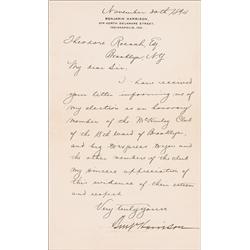 November 30th 1894
BENJAMIN HARRISON,
674 NORTH DELAWARE STREET,
INDIANAPOLIS, IND.
Theodore Esq
Brooklyn, N.Y.
My dear Sir:
I have received
your letter informing me of
my election as an honorary
member of the McKinley Club
of the Ward of Brooklyn,
and beg to express to you and
the other members of the club
my sincere appreciation of
this evidence of their esteem
and respect.
Very truly yours
Benj Harrison